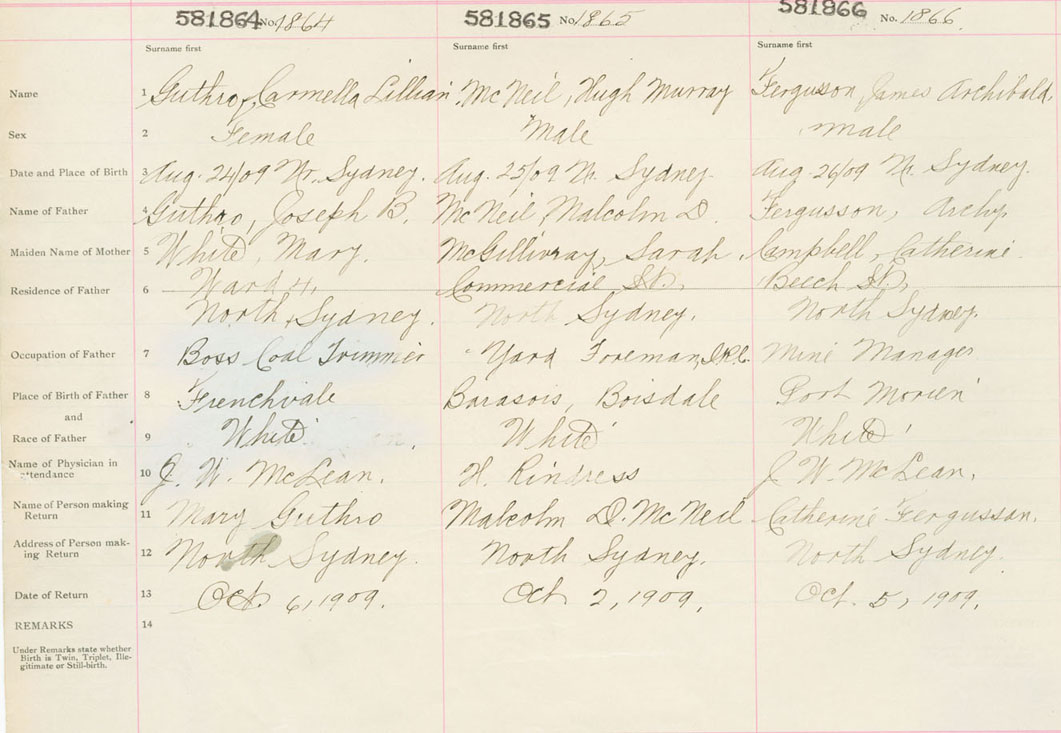 581864 No. 1864 581865 No. 1865 581866 No. 1866
Surname first Surname first Surname first
Name 1 Guthro, Carmella Lillian McNeil, Hugh Murray Fergusson, James Archibald,
Sex 2 Female Male Male
Date and Place of Birth 3 Aug. 24/09 Nr. Sydney. Aug. 25/09 Nr. Sydney. Aug. 26/09 Nr. Sydney.
Name of Father 4 Guthro, Joseph B. McNeil, Malcolm D. Fergusson, Archy
Maiden Name of Mother 5 White, Mary. McGillivray, Sarah Campbell, Catherine
Residence of Father 6 Ward 4, Commercial St., Beech St.,
North Sydney. North Sydney. North Sydney.
Occupation of Father 7 Boss Coal Trimmer Yard Foreman, Mine Manager
Place of Birth of Father 8 Frenchvale Barasois, Boisdale Port Morien
and
Race of Father 9 White White White
Name of Physician in attendance 10 J. W. McLean. H. Rindress J. W. McLean.
Name of Person making Return 11 Mary Guthro Malcolm D. McNeil Catherine Fergusson.
Address of Person mak- ing Return 12 North Sydney. North Sydney. North Sydney.
Date of Return 13 Oct. 6, 1909. Oct 2, 1909. Oct. 5, 1909.
REMARKS 14
Under Remarks state whether
Birth is Twin, Triplet, Ille-
gitimate or Still-birth.